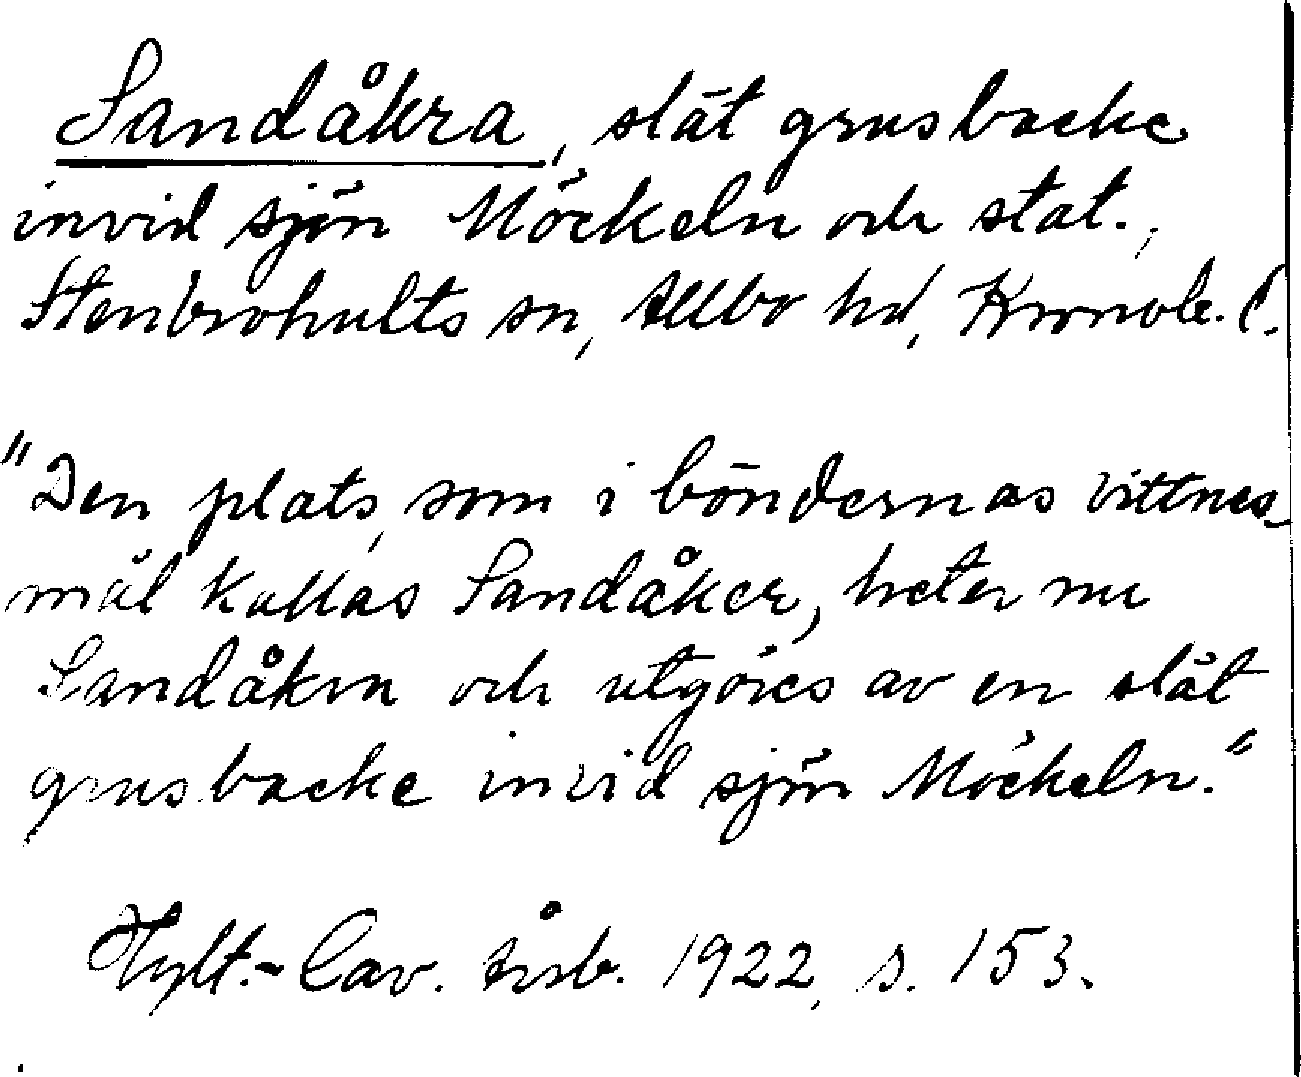 Sandåkra, slät grusbacke
invid sjön Möckeln och stat.,
Stenbrohults sn, Allbo hd, Kronob. l.
"Den plats, som i böndernas vittnes-
mål kallas Sandåker, heter nu
Sandåkra och utgöres av en slät
grusbacke invid sjön Möckeln."
Hylt.-Cav. årsb. 1922, s. 153.